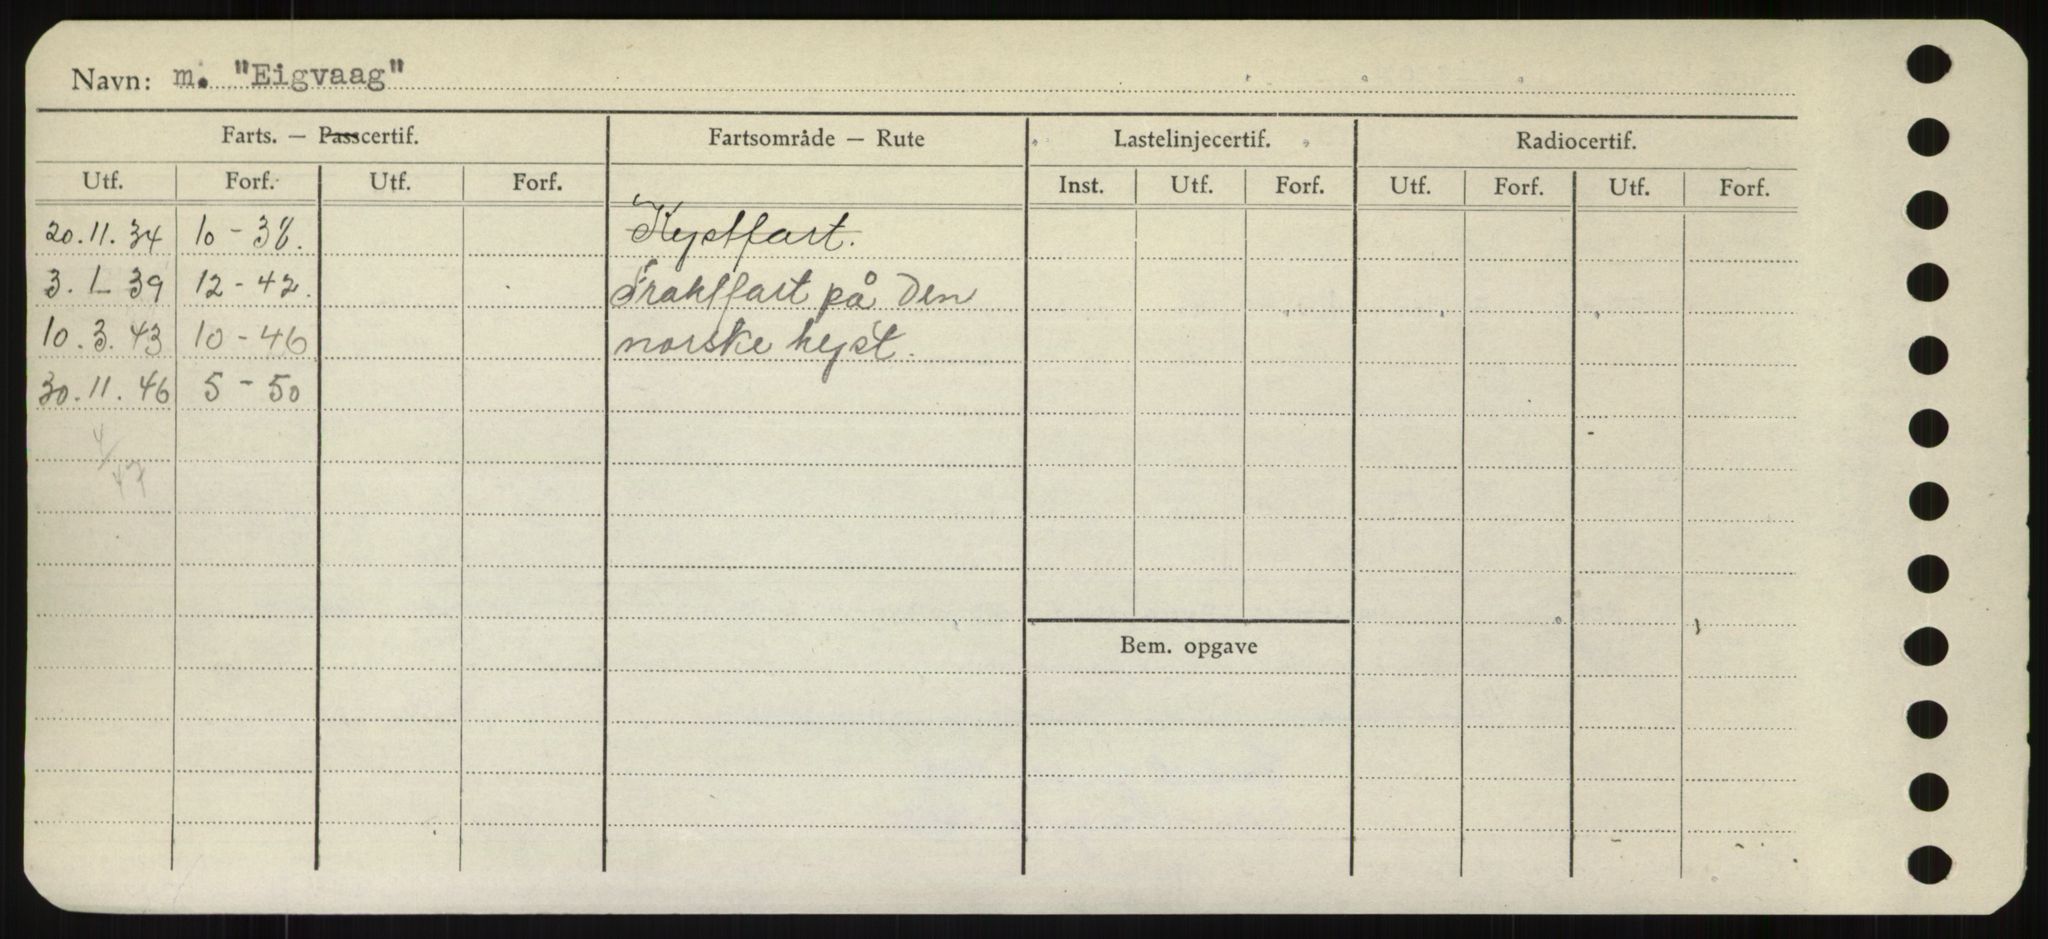 Navn: m. "Eigvaag"
Farts. — Passcertif. Fartsområde — Rute Lastelinjecertif. Radiocertif.
Utf. Forf. Utf. Forf. Inst. Utf. Forf. Utf. Forf. Utf. Forf.
20.11.34 10-38. Kystfart.
3. 1 39 12-42. Fraktfart på den
10.3.43 10-46 norske kyst.
30.11.46 5-50
4/47
Bem. opgave